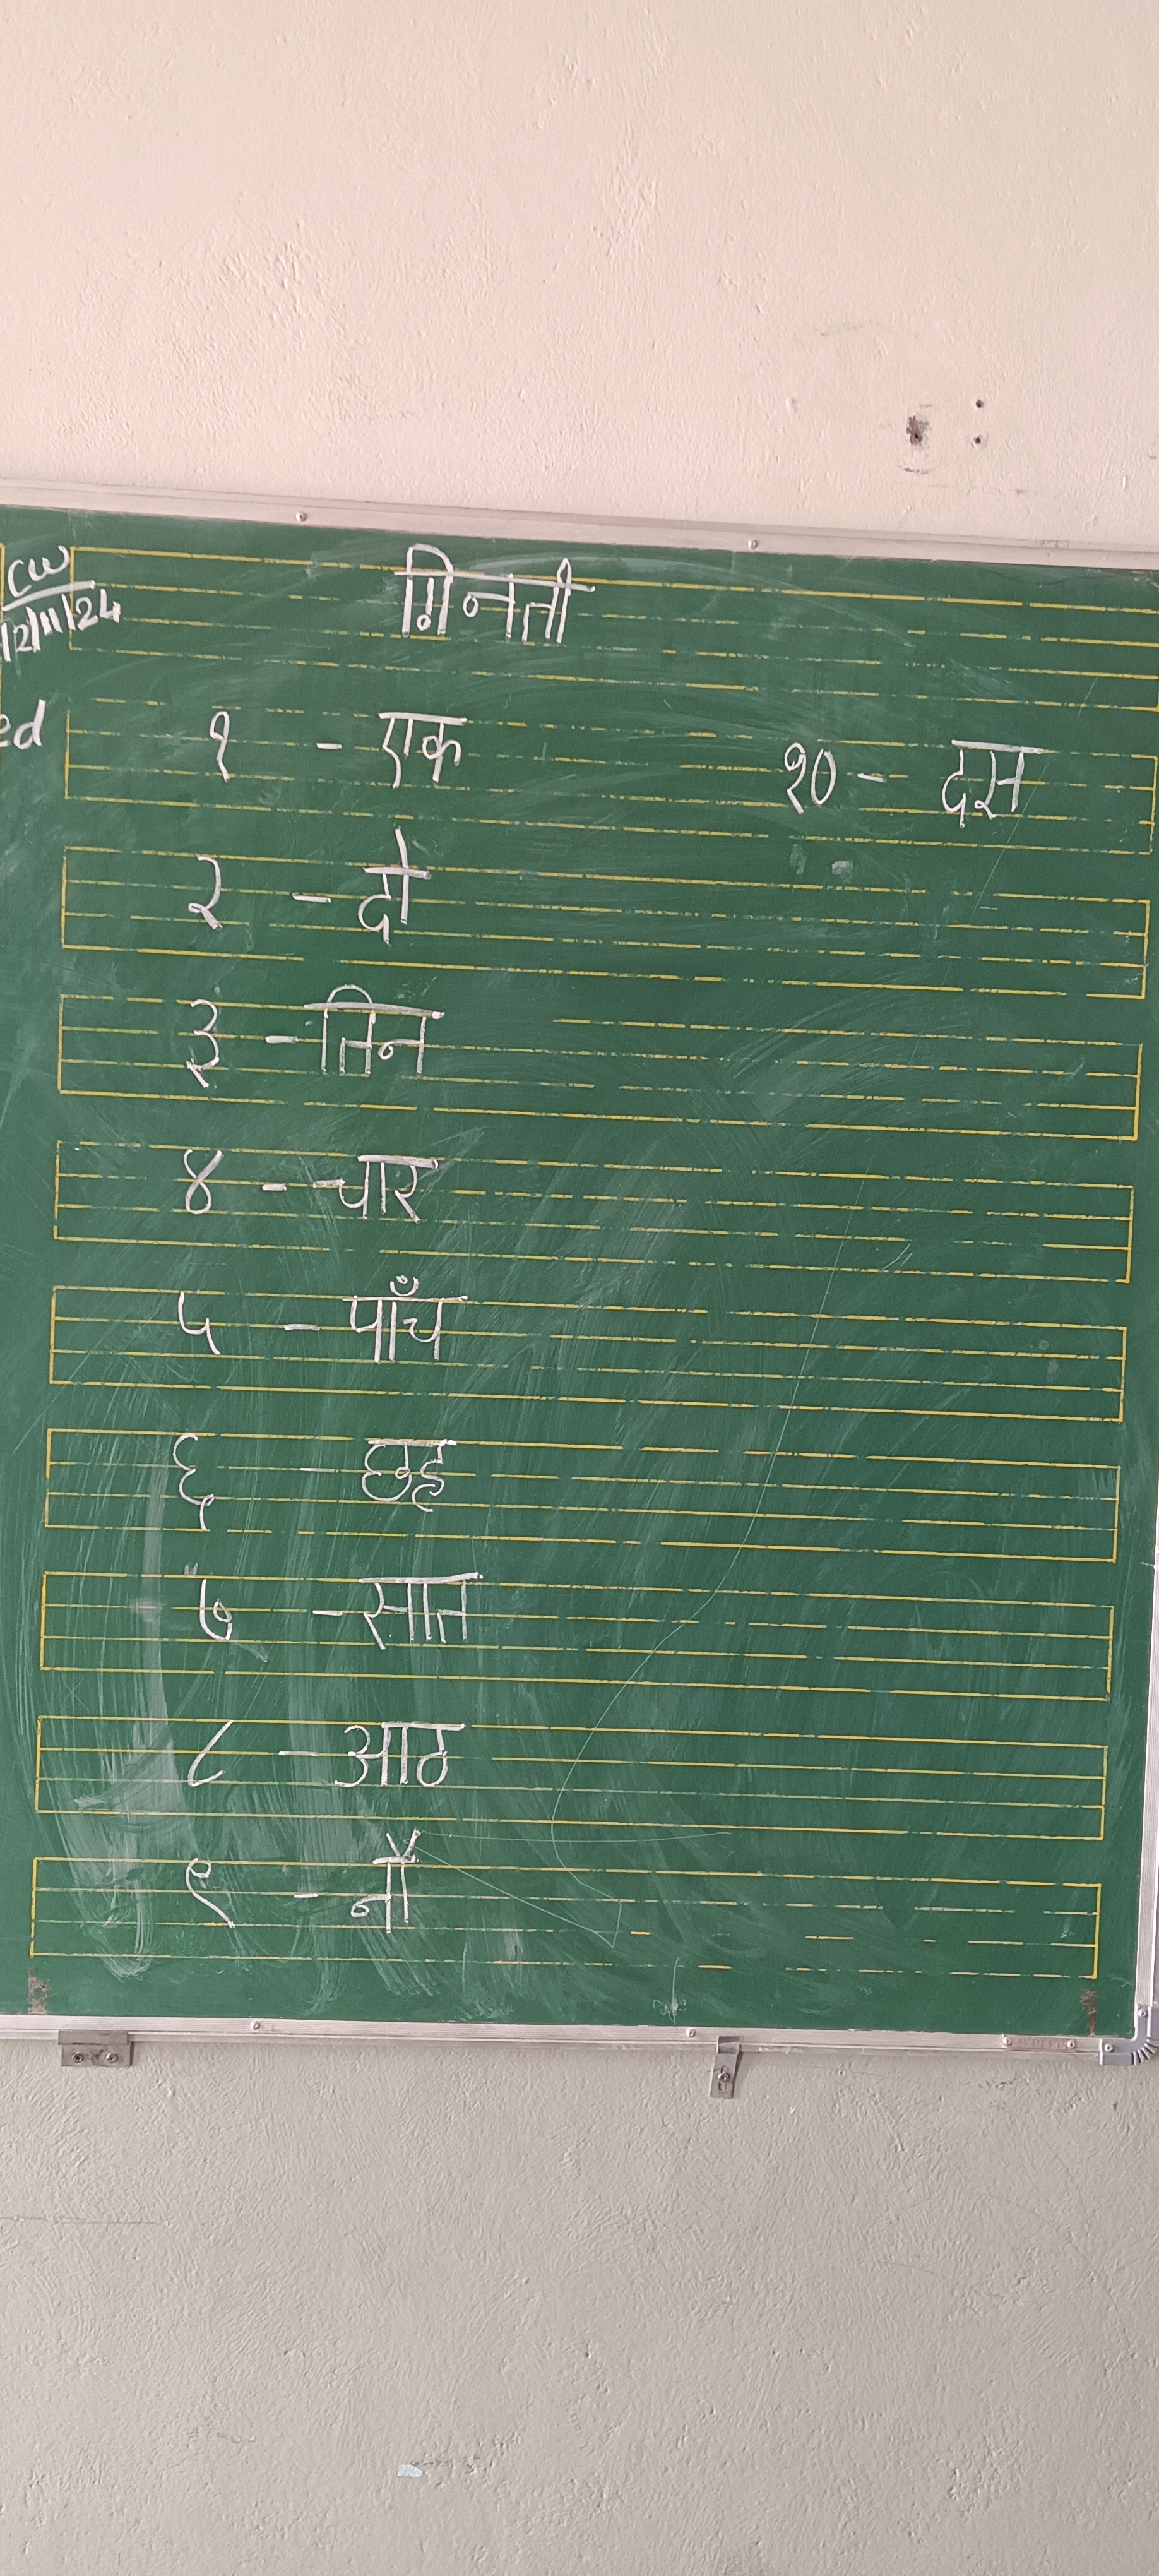 CW
12/11/24
गिनती
ed
१ - एक
१० - दस
२ - दो
३ - तिन
४ - चार
५ - पाँच
६ - छह
७ - सात
८ - आठ
९ - नौ